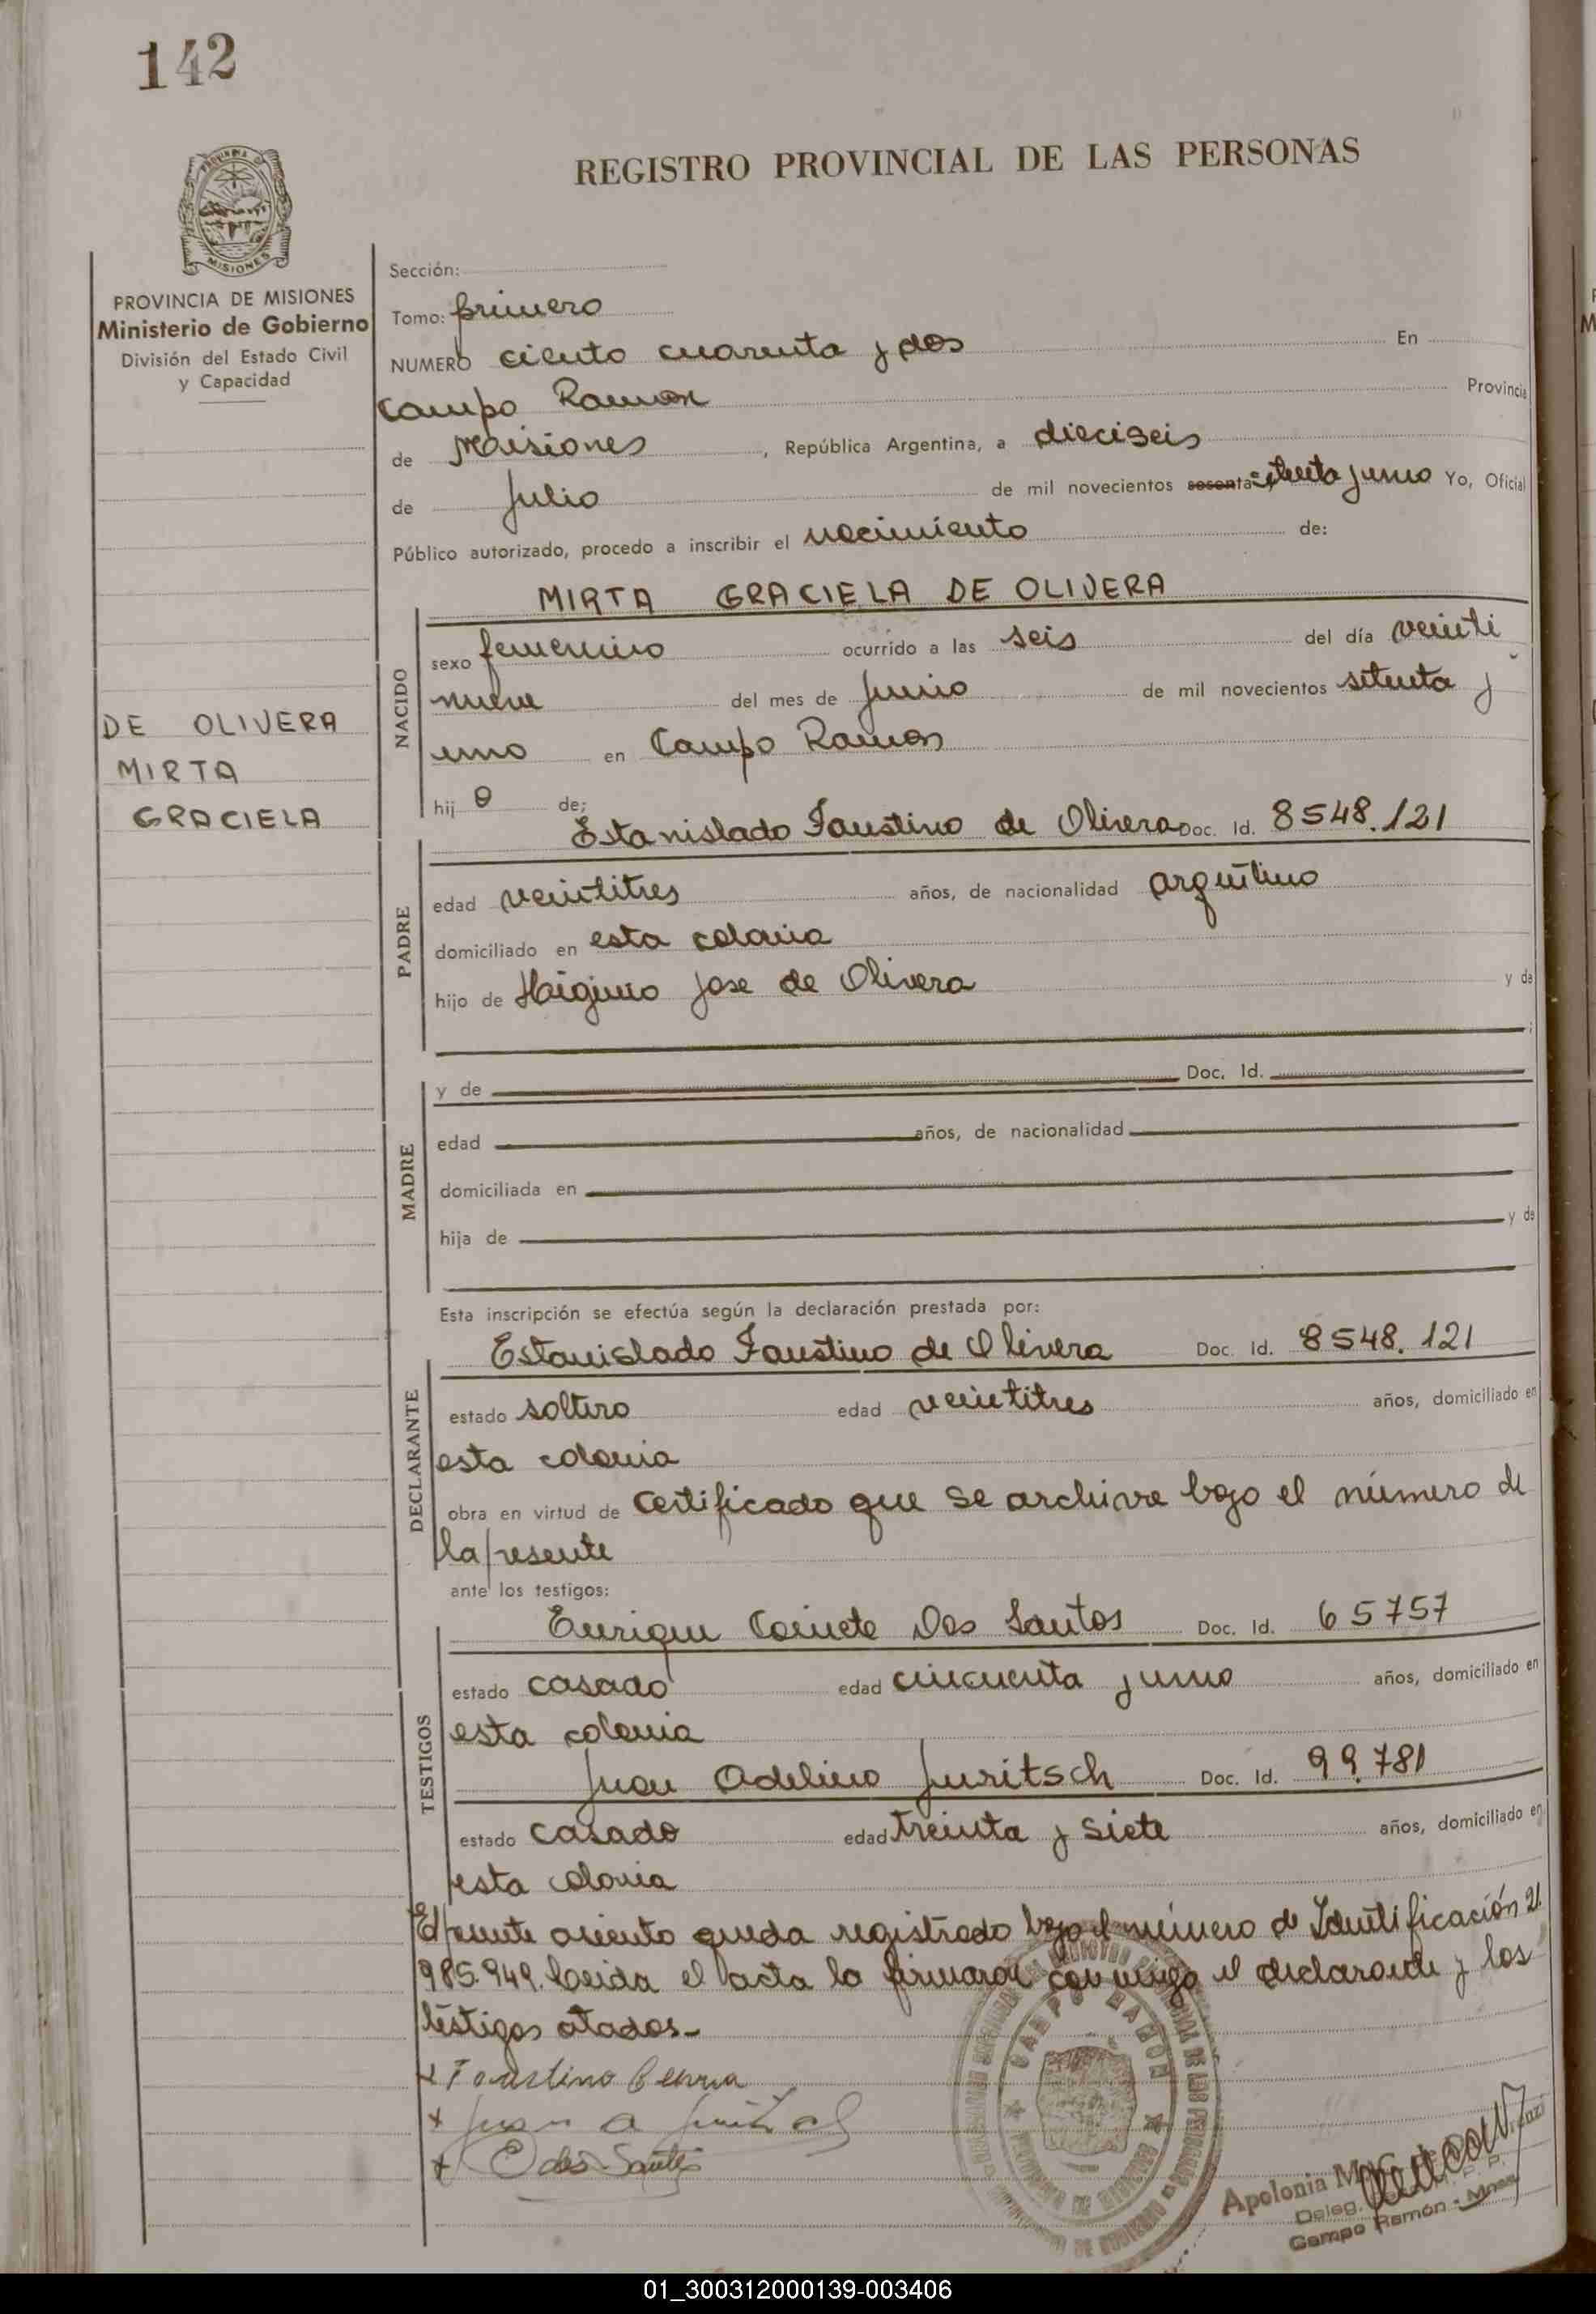 142
REGISTRO PROVINCIAL DE LAS PERSONAS
PROVINCIA DE MISIONES
Ministerio de Gobierno
División del Estado Civil
y Capacidad
DE OLIVERA
MIRTA
GRACIELA
Sección:
Tomo: primero
NUMERO ciento cuarenta y dos En
Campo Ramon Provincia
de Misiones, República Argentina, a dieciseis
de Julio de mil novecientos sesenta setenta y uno Yo, Oficial
Público autorizado, procedo a inscribir el nacimiento de:
MIRTA GRACIELA DE OLIVERA
NACIDO
sexo femenino ocurrido a las seis del día veinti
nueve del mes de Junio de mil novecientos setenta y
uno en Campo Ramon
hij a de;
Estanislado Faustino de Olivera Doc. Id. 8548.121
PADRE
edad veintitres años, de nacionalidad argentino
domiciliado en esta colonia
hijo de Haiginio Jose de Olivera y de
MADRE
y de Doc. Id.
edad años, de nacionalidad
domiciliada en
hija de y de
Esta inscripción se efectúa según la declaración prestada por:
Estanislado Faustino de Olivera Doc. Id. 8548.121
DECLARANTE
estado soltero edad veintitres años, domiciliado en
esta colonia
obra en virtud de Certificado que se archiva bajo el número de
la presente
ante los testigos:
Enrique Dos Santos Doc. Id. 65757
TESTIGOS
estado casado edad cincuenta y uno años, domiciliado en
esta colonia
Juan Adelino Juritsch Doc. Id. 99.781
estado casado edad treinta y siete años, domiciliado en
esta colonia
El asiento queda registrado bajo el número de Identificación 21.
985.949. Leida el acta la firmaron conmigo el declarante y los
testigos citados.-
x Faustino
x Juan a
x E dos Santos
CAMPO RAMON
Apolonia M.
Deleg.
Campo Ramón - Mnes
01_300312000139-003406